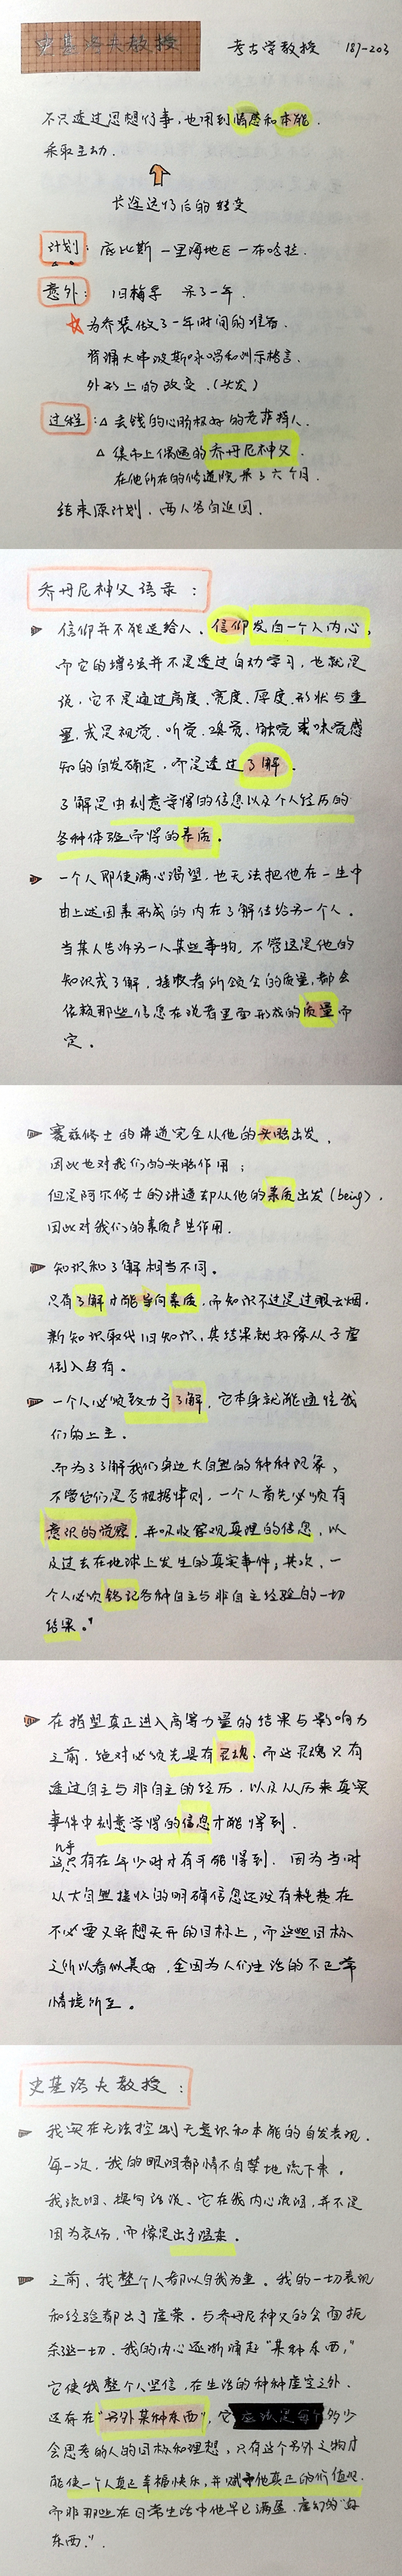 史基洛夫教授 考古学教授 187-203
不只透过思想行事,也用到情感和本能.
采取主动.
长途远行后的转变
计划: 底比斯 一里海地区 一布哈拉.
意外: 旧梅孚 呆了一年.
为乔装做了一年时间的准备.
背诵大串波斯咏唱和训示格言.
外形上的改变.(头发)
过程: △ 丢钱的心肠极好的老萨特人.
△ 集市上偶遇的乔丹尼神父.
在他所在的修道院呆了六个月.
结束原计划,两人各自返回.
乔丹尼神父语录:
信仰并不能送给人. 信仰发自一个人内心,
而它的增强并不是透过自动学习,也就是
说,它不是通过高度、宽度、厚度、形状与重
量,或是视觉、听觉、嗅觉、触觉或味觉感
知的自发确定,而是透过了解.
了解是由刻意学得的信息以及个人经历的
各种体验而得的素质.
一个人即使满心渴望,也无法把他在一生中
由上述因素形成的内在了解传给另一个人.
当某人告诉另一人某些事物,不管这是他的
知识或了解,接收者所领会的质量,都会
依赖那些信息在说者里面形成的质量而
定.
赛兹修士的讲道完全从他的头脑出发,
因此也对我们的头脑作用;
但是阿尔修士的讲道却从他的素质出发(being),
因此对我们的素质产生作用.
知识和了解相当不同.
只有了解才能导向素质,而知识不过是过眼云烟.
新知识取代旧知识,其结果就好像从子虚
倒入乌有.
一个人必须致力于了解,它本身就能通往我
们的上主.
而为了了解我们身边大自然的种种现象,
不管它们是否根据律则,一个人首先必须有
意识的觉察,并吸收客观真理的信息,以
及过去在地球上发生的真实事件;其次,一
个人必须铭记各种自主与非自主经验的一切
结果."
在指望真正进入高等力量的结果与影响力
之前,绝对必须先具有灵魂,而这灵魂只有
透过自主与非自主的经历,以及从历来真实
事件中刻意学得的信息才能得到.
这几乎只有在年少时才有可能得到. 因为当时
从大自然接收的明确信息还没有耗费在
不必要又异想天开的目标上,而这些目标
之所以看似美好,全因为人们生活的不正常
情境所至.
史基洛夫教授:
我实在无法控制无意识和本能的自发表现.
每一次,我的眼泪都情不自禁地流下来.
我流泪、换句话说、它在我内心流泪,并不是
因为哀伤,而像是出于温柔.
之前、我整个人都以自我为重. 我的一切表现
和经验都出于虚荣. 与乔丹尼神父的会面扼
杀这一切. 我的内心逐渐涌起"某种东西,"
它使我整个人坚信,在生活的种种虚空之外.
还存在"另外某种东西",它应该是每个多少
会思考的人的目标和理想,只有这个另外之物才
能使一个人真正幸福快乐,并赋予他真正的价值观.
而非那些在日常生活中他早已满盈、虚幻的"好
东西.".